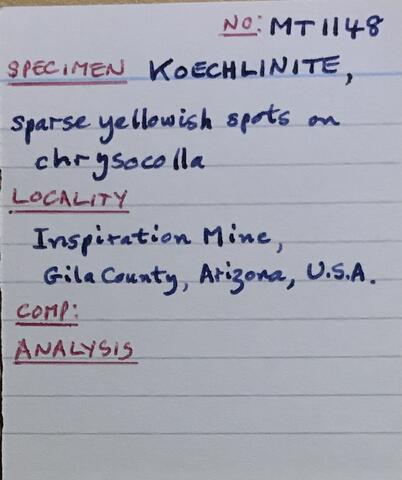 NO: MT1148
SPECIMEN KOECHLINITE,
sparse yellowish spots on
chrysocolla
LOCALITY
Inspiration Mine,
Gila County, Arizona, U.S.A.
COMP:
ANALYSIS